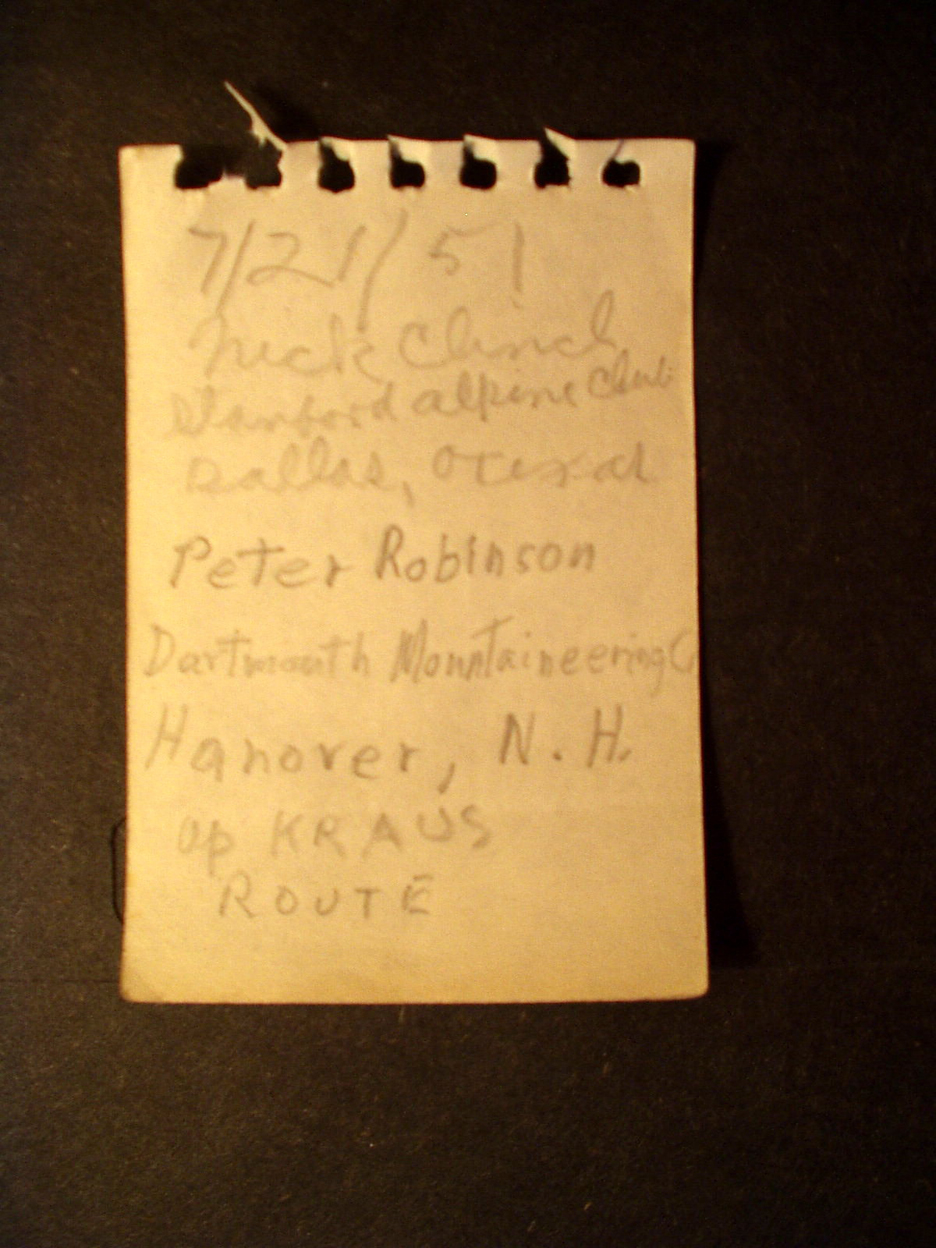 7/21/51
Nick Clinch
Stanford alpine Club
Dallas, Texas
Peter Robinson
Dartmouth Mountaineering C
Hanover, N.H.
up KRAUS
ROUTE